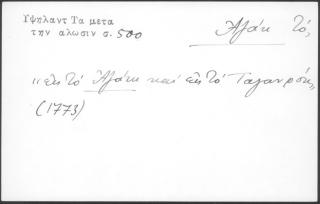 Ὑψηλαντ Τα μετα
την αλωσιν σ. 500
Ἀζάκ τό,
"εἰς τό Ἀζάκι καί εἰς τό Ταγανρόκ"
(1773)